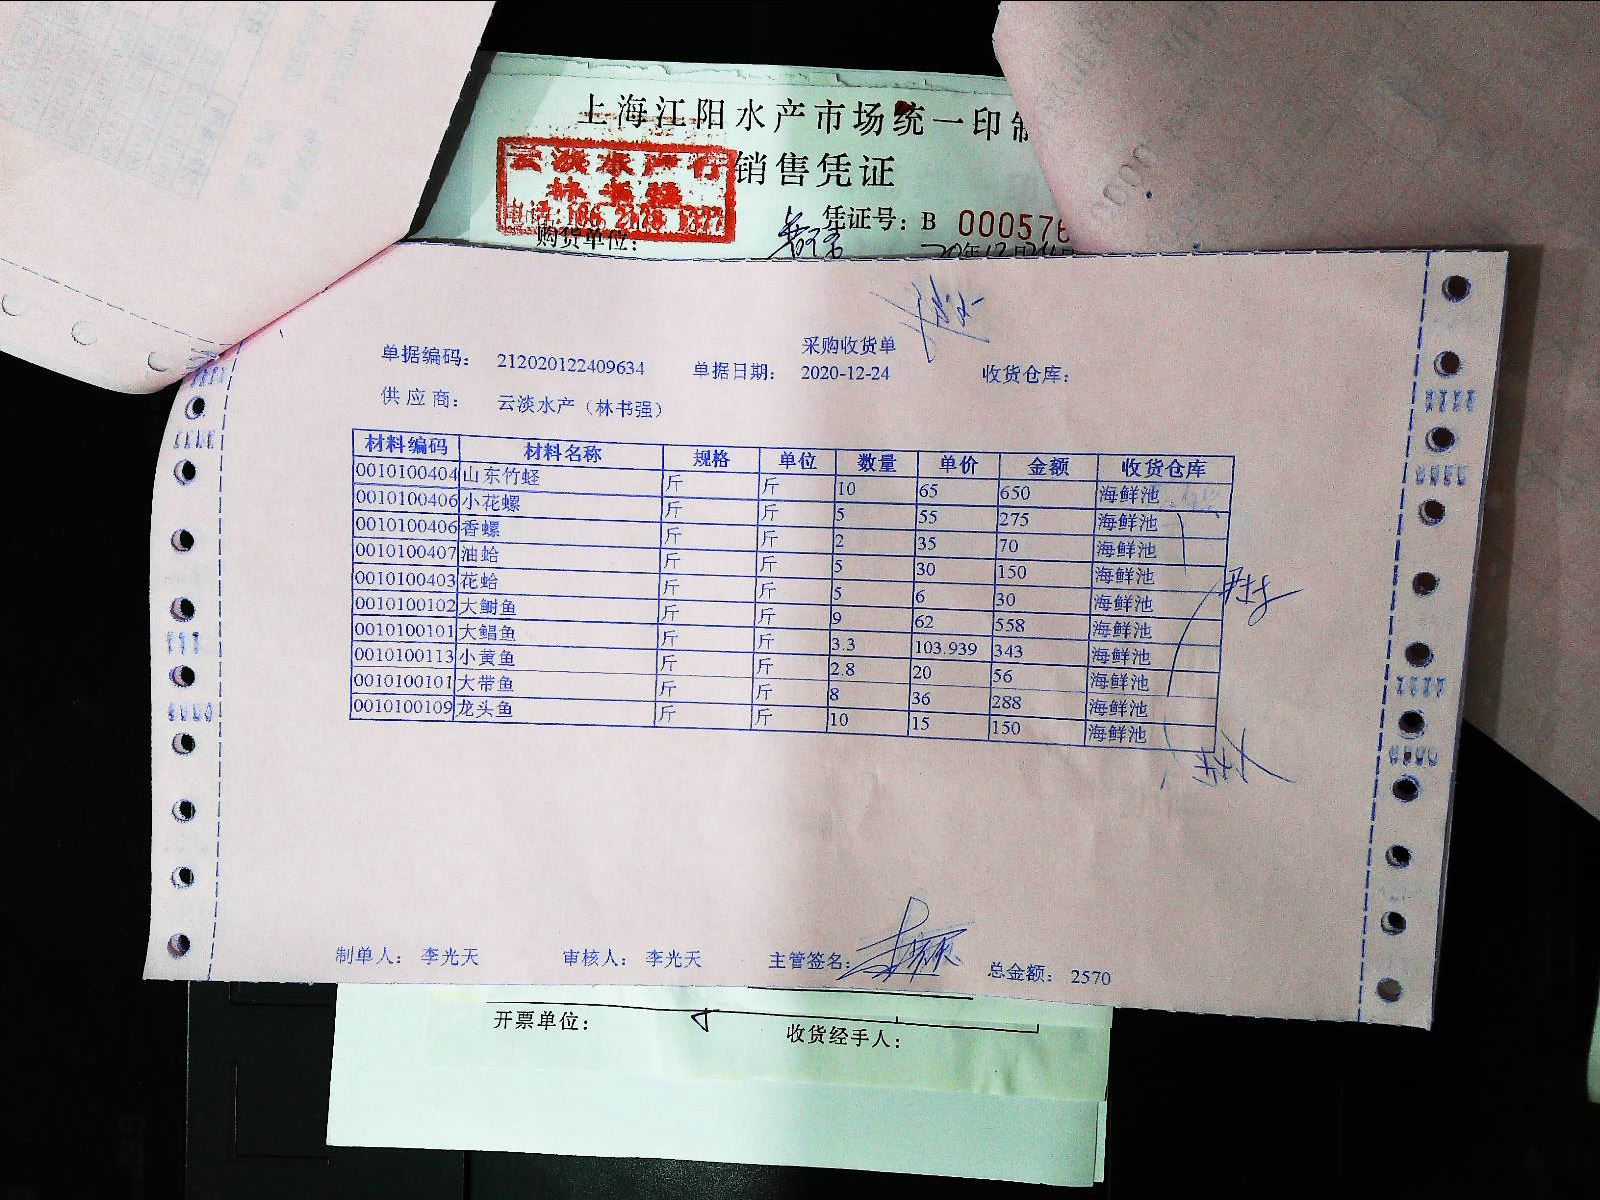 上海江阳水产市场统一印制
云淡水产行
林书强
销售凭证
凭证号：B 000576
购货单位：
采购收货单
单据编码： 212020122409634 单据日期： 2020-12-24 收货仓库：
供应商： 云淡水产（林书强）
材料编码 材料名称 规格 单位 数量 单价 金额 收货仓库
0010100404 山东竹蛏 斤 斤 10 65 650 海鲜池
0010100406 小花螺 斤 斤 5 55 275 海鲜池
0010100406 香螺 斤 斤 2 35 70 海鲜池
0010100407 油蛤 斤 斤 5 30 150 海鲜池
0010100403 花蛤 斤 斤 5 6 30 海鲜池
0010100102 大鲥鱼 斤 斤 9 62 558 海鲜池
0010100101 大鲳鱼 斤 斤 3.3 103.939 343 海鲜池
0010100113 小黄鱼 斤 斤 2.8 20 56 海鲜池
0010100101 大带鱼 斤 斤 8 36 288 海鲜池
0010100109 龙头鱼 斤 斤 10 15 150 海鲜池
制单人： 李光天 审核人： 李光天 主管签名： 总金额： 2570
开票单位： 收货经手人：